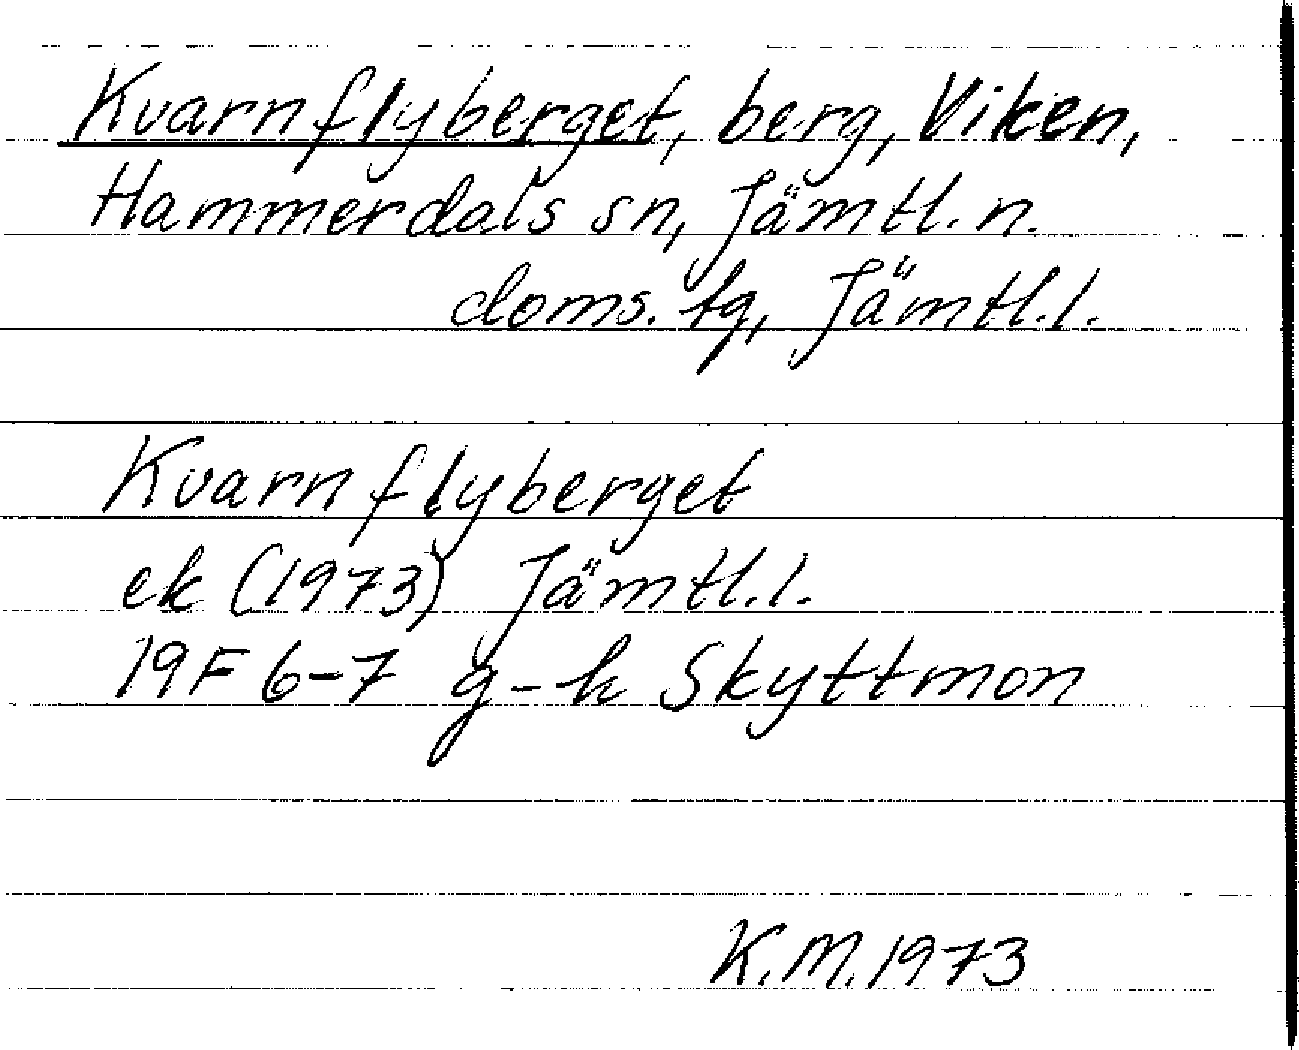 Kvarnflyberget, berg, Viken,
Hammerdals sn, Jämtl. n.
doms. tg, Jämtl. l.
Kvarnflyberget
ek (1973) Jämtl. l.
19F 6-7 g-h Skyttmon
K.M. 1973